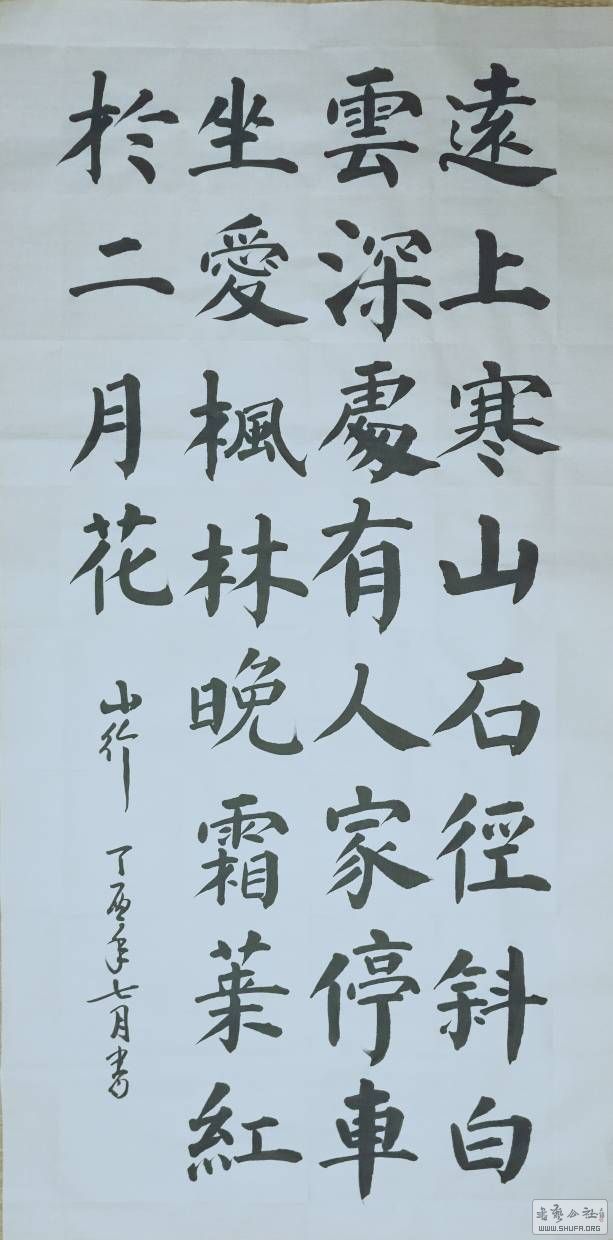 遠上寒山石徑斜白
雲深處有人家停車
坐愛楓林晚霜葉紅
於二月花
山行 丁酉年七月書
書藝公社
WWW.SHUFA.ORG